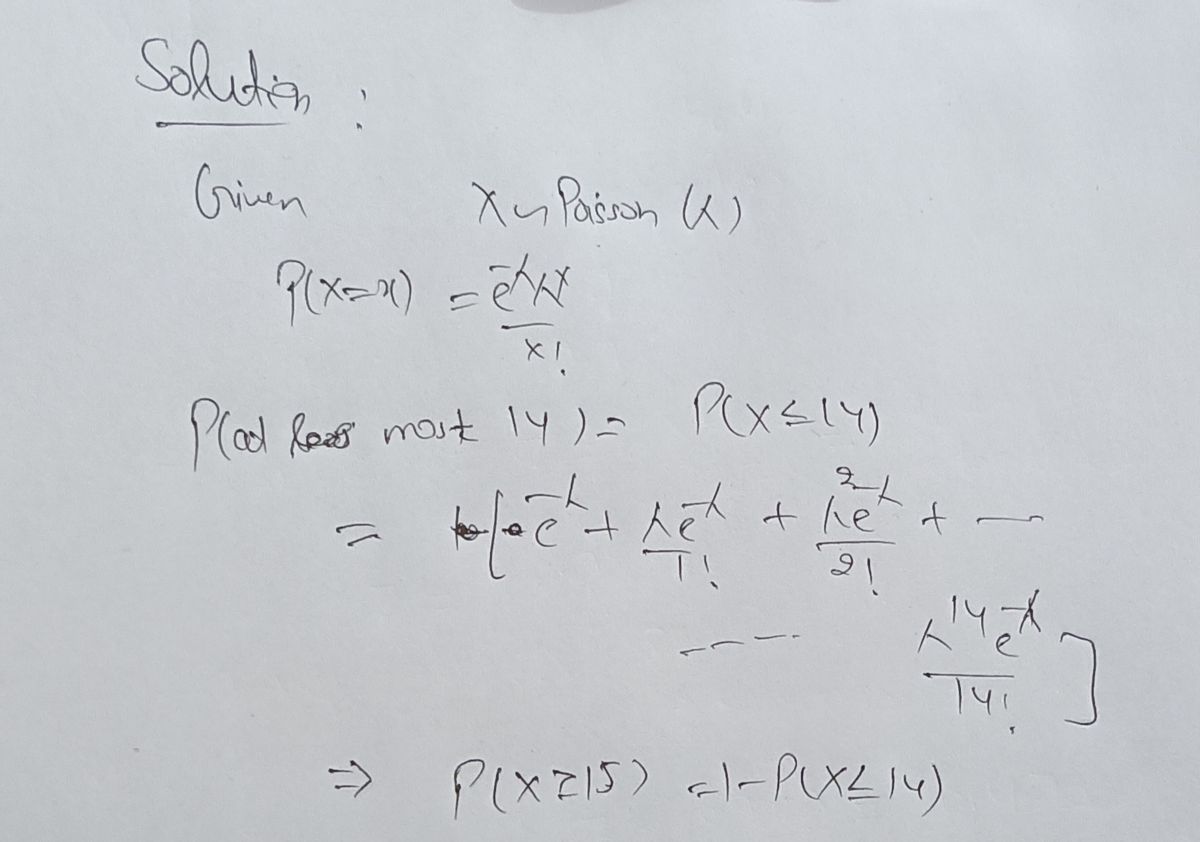 Solution :
Given X ~ Poisson (λ)
P(X=x) = e^-λ λ^x / x!
P(at most 14) = P(X≤14)
= [e^-λ + λe^-λ/1! + λ^2e^-λ/2! + —
---- λ^14 e^-λ/14! ]
⇒ P(X≥15) = 1-P(X≤14)